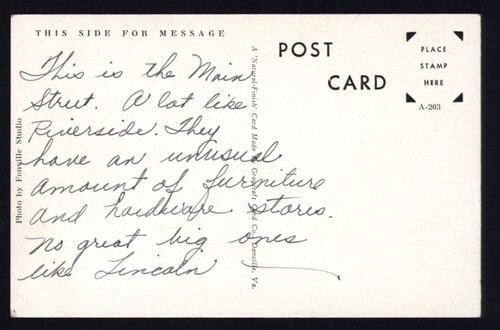 THIS SIDE FOR MESSAGE
This is the Main
Street. A lot like
Riverside. They
have an unusual
amount of furniture
and hardware stores.
No great big ones
like Lincoln
Photo by Fonville Studio
A 'Natural-Finish' Card Made by Graycraft Card Co., Danville, Va.
POST
CARD
PLACE
STAMP
HERE
A-203